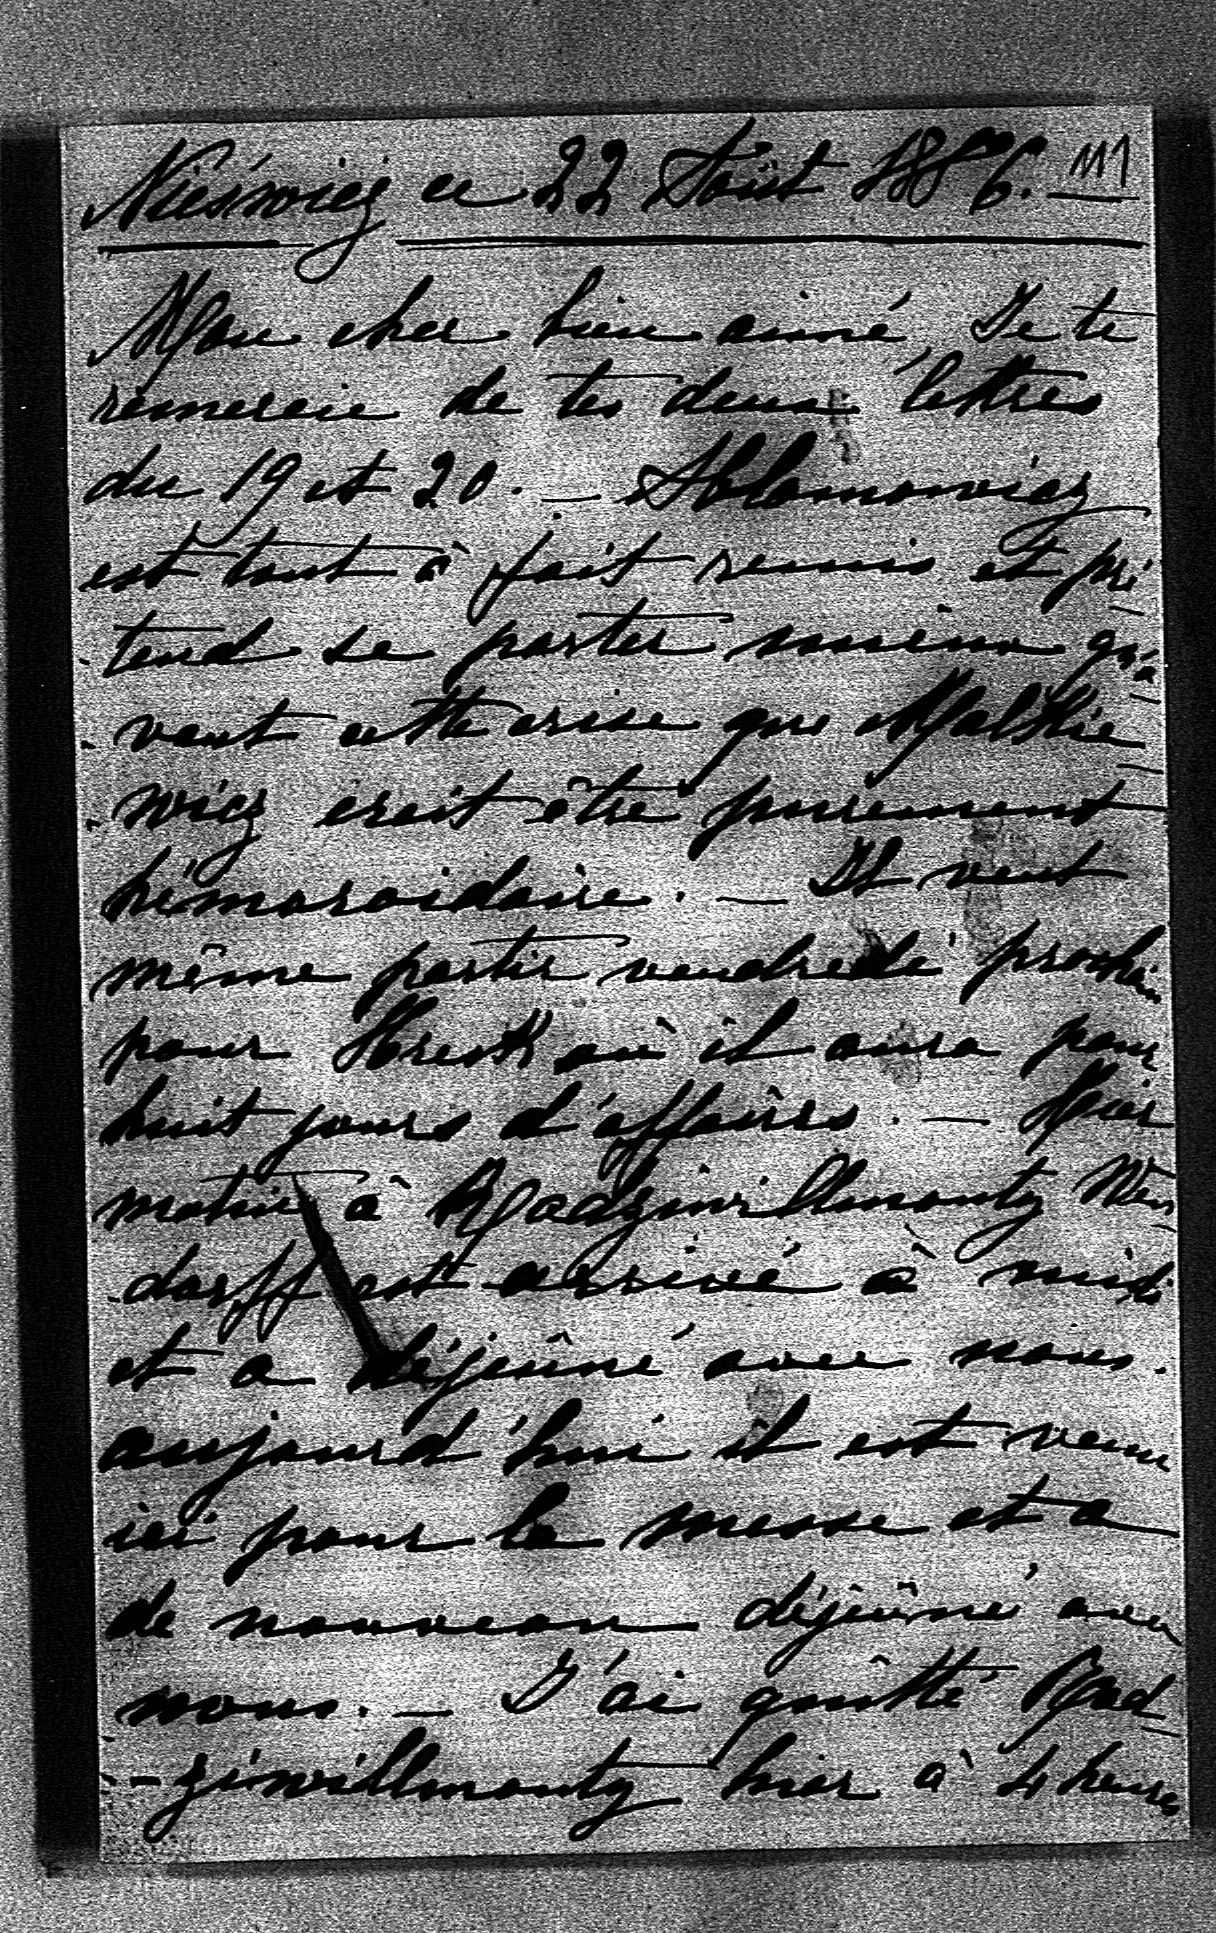 Nieśwież ce 22 Août 1886. 111
Mon cher bien aimé, Je te
remercie de tes deux lettres
du 19 et 20. — Abłamowicz
est tout à fait remis et pré
-tend se porter mieux qu'a
-vant cette crise que Malkie
-wicz croit être purement
hémoroidaire. — Il veut
même partir vendredi prochain
pour où il aura pour
huit jours d'affaires. — Hier
matin à Radziwillmonty Wen
-dorff est arrivé à midi
et a déjeûné avec nous.
aujourd'hui il est venu
ici pour la messe et a
de nouveau déjeûné avec
nous. — J'ai quitté Rad
-ziwillmonty hier à 4 heures